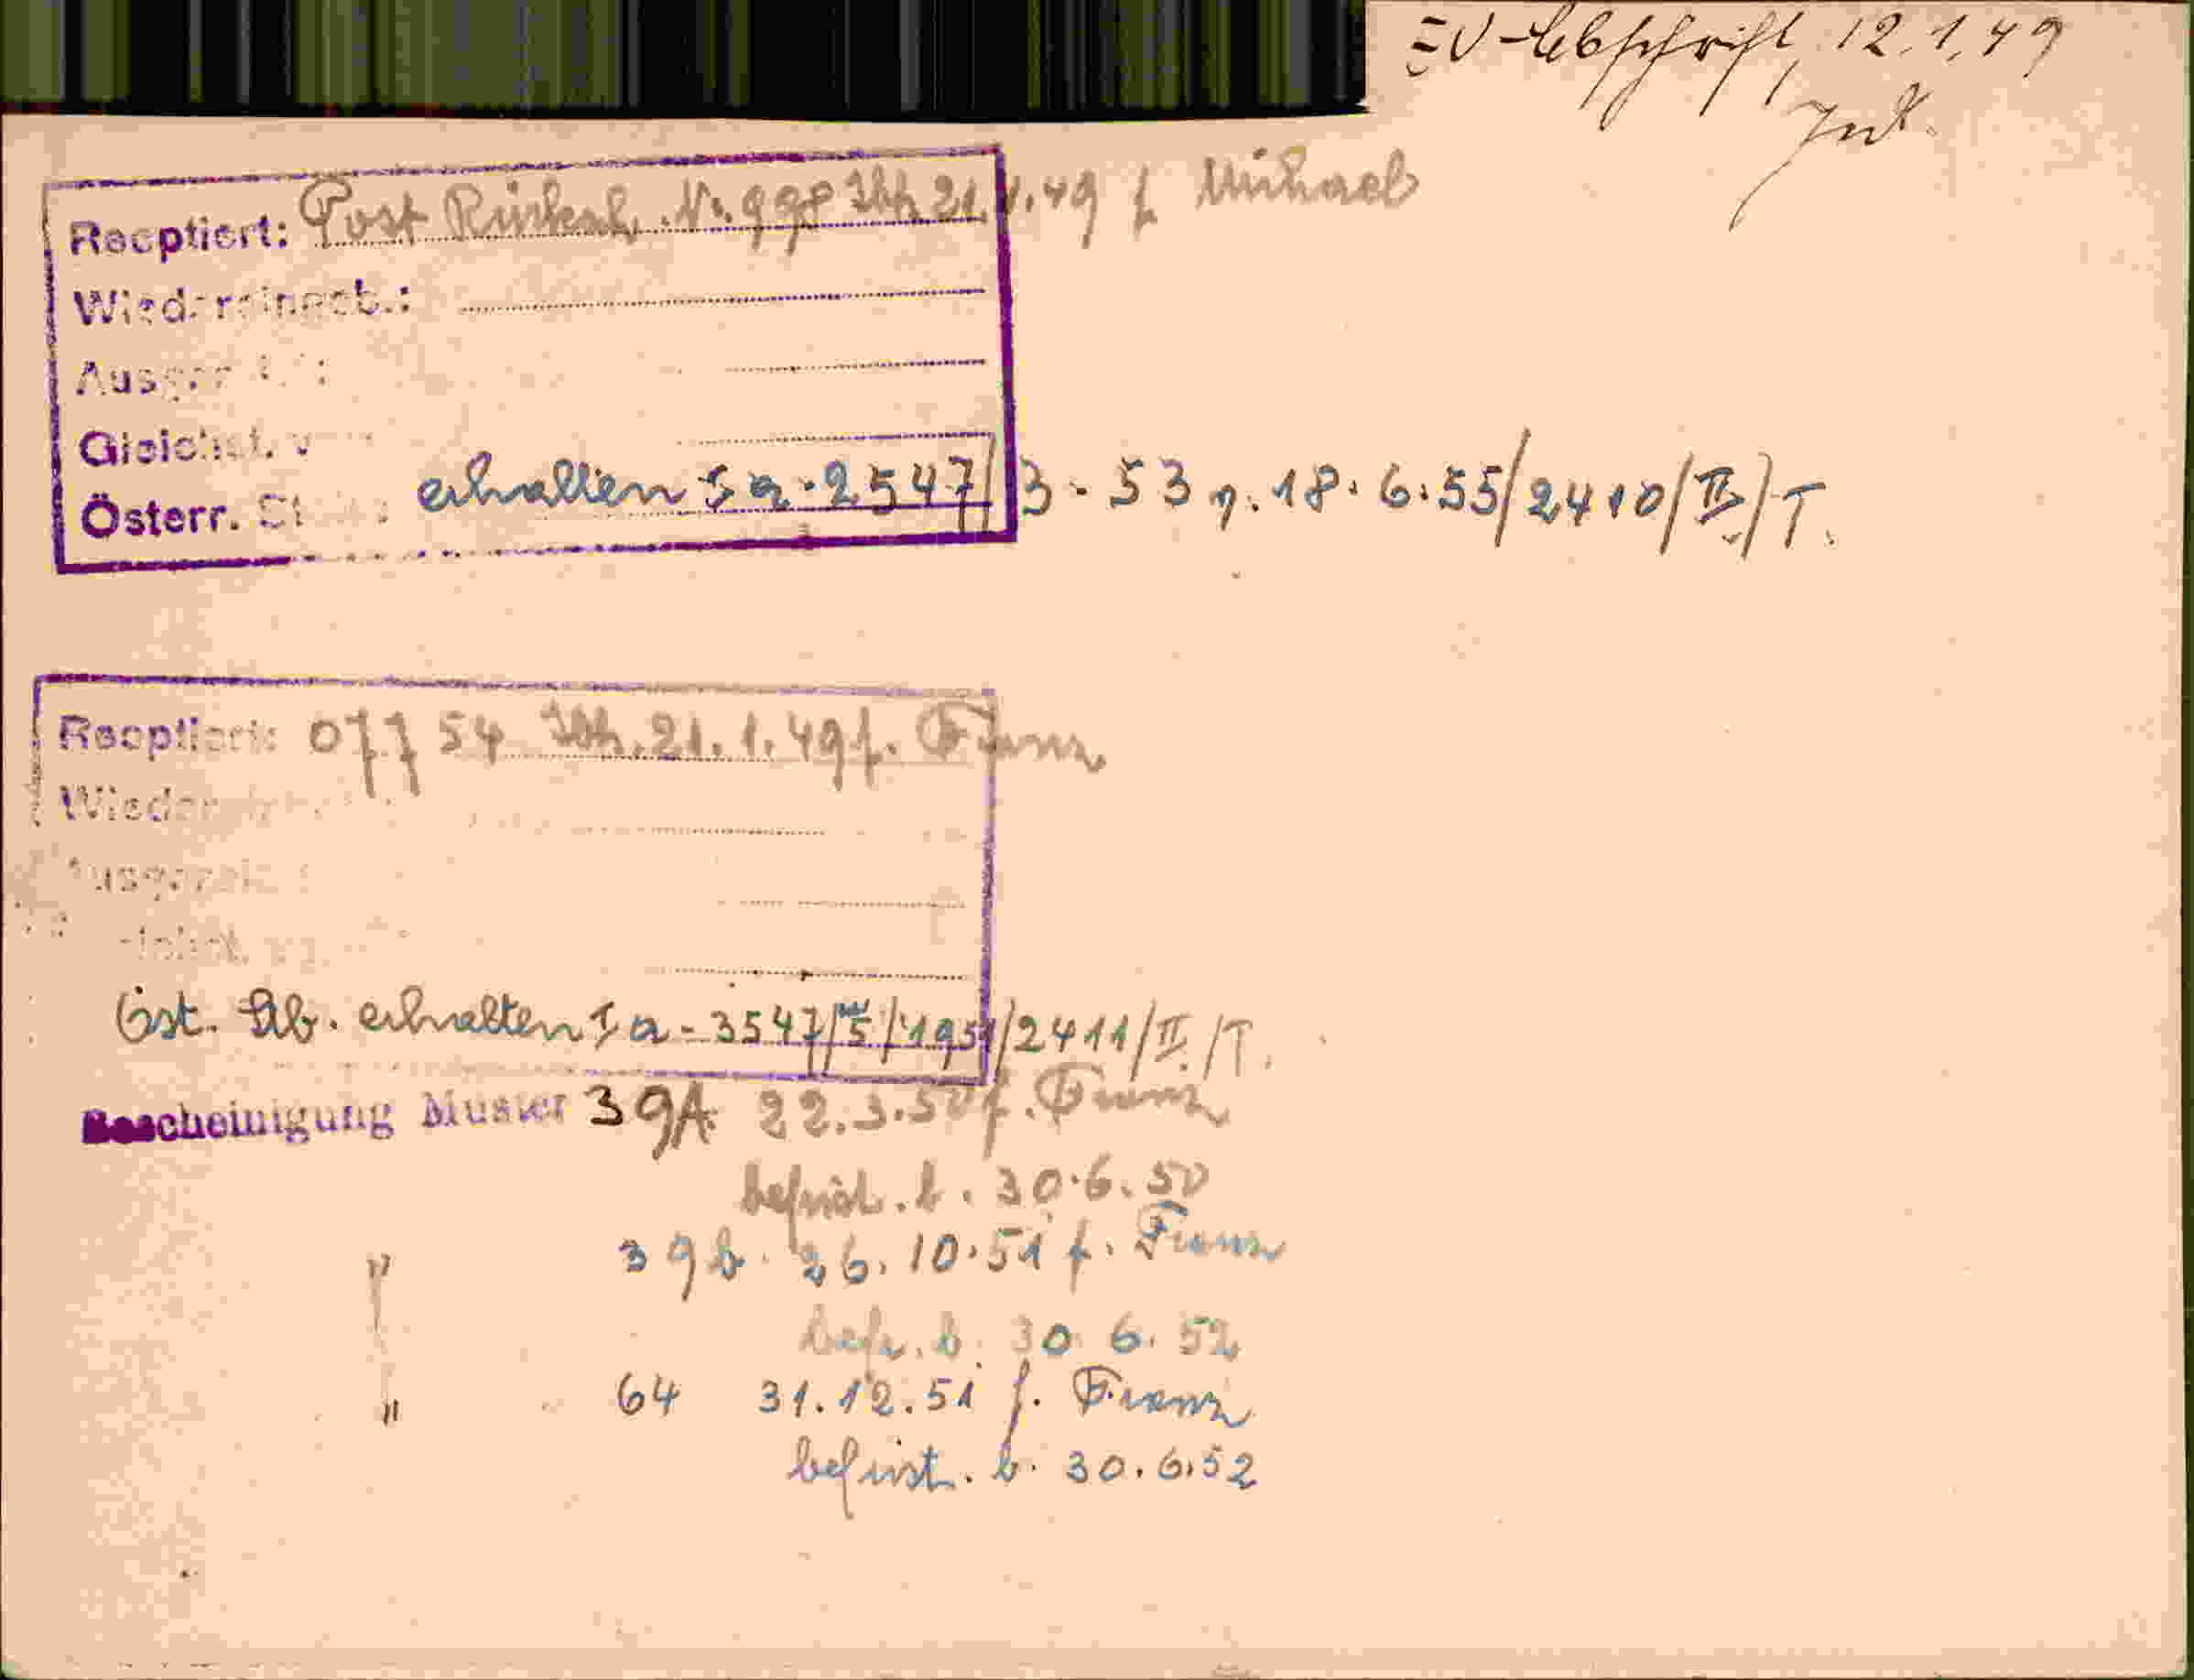 EV-Abschrift, 12.1.49
Reoptiert: Post Rücksch. Nr. 998 21.1.49 f Michael
Wiedereingeb.:
Ausger
Gleichst. v
Österr. St erhalten 1a-2547/3-53 v. 18.6.55/2410/II/T.
Reoptiert: 07754 21.1.49 f. Franz
Wieder
Ausger
Öst. Stb. erhalten 1a-3547/5/1951/2411/II/T.
Bescheinigung Muster 39A 22.3.50 f. Franz
befrist. b. 30.6.50
" 39b. 26.10.51 f. Franz
befr. b. 30 6. 52
" 64 31.12.51 f. Franz
befrist. b. 30.6.52